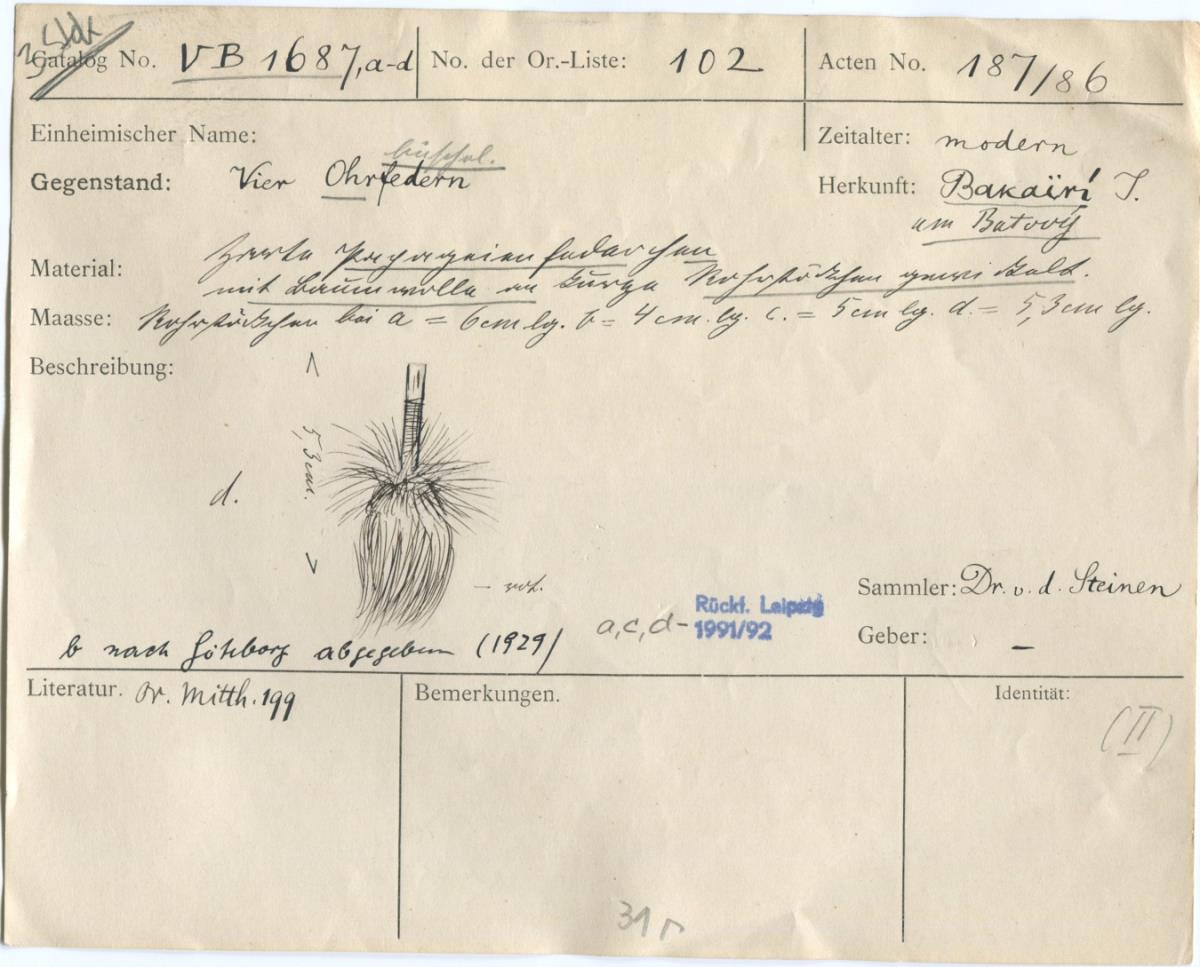 Catalog No. VB 1687, a-d
No. der Or.-Liste: 102
Acten No. 187/86
Einheimischer Name:
Zeitalter: modern
büschel.
Gegenstand: Vier Ohrfedern
Herkunft: Bakaïrí I.
am Batový
Material: Zarte Papageienfederchen
mit Baumwolle an kurze Rohrstöckchen gewickelt.
Maasse: Rohrstöckchen bei a = 6 cm lg. b = 4 cm. lg. c. = 5 cm lg. d. = 5,3 cm lg.
Beschreibung:
5,3 cm.
d.
– rot.
Sammler: Dr. v. d. Steinen
a, c, d – Rückf. Leipzig
1991/92
Geber: –
b nach Göteborg abgegeben (1929)
Literatur. Or. Mitth. 199
Bemerkungen.
Identität:
(II)